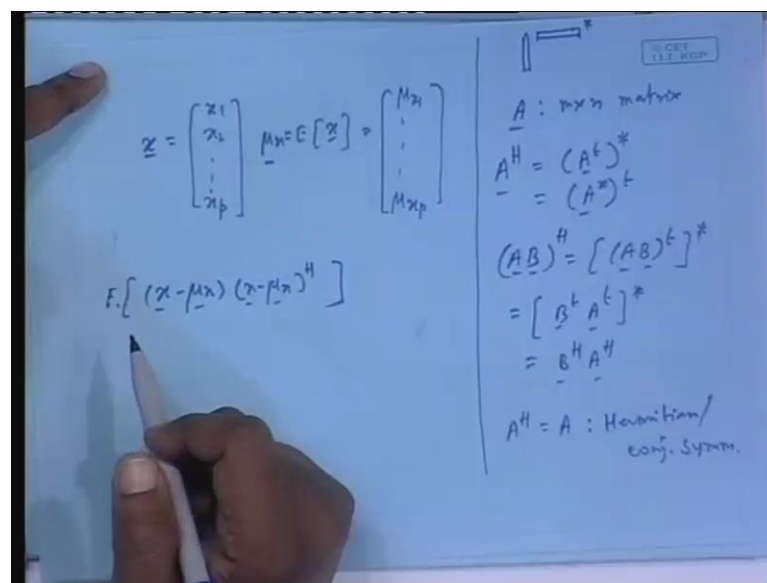 x = [ x1 x2 ⋮ xp ] μx = E [ x ] = [ μx1 ⋮ μxp ]
E. [ (x - μx) (x - μx)^H ]
*
© CET
I.I.T. KGP
A : mxn matrix
A^H = (A^t)^*
= (A^*)^t
(AB)^H = [(AB)^t]^*
= [B^t A^t]^*
= B^H A^H
A^H = A : Hermitian/
conj. Symm.